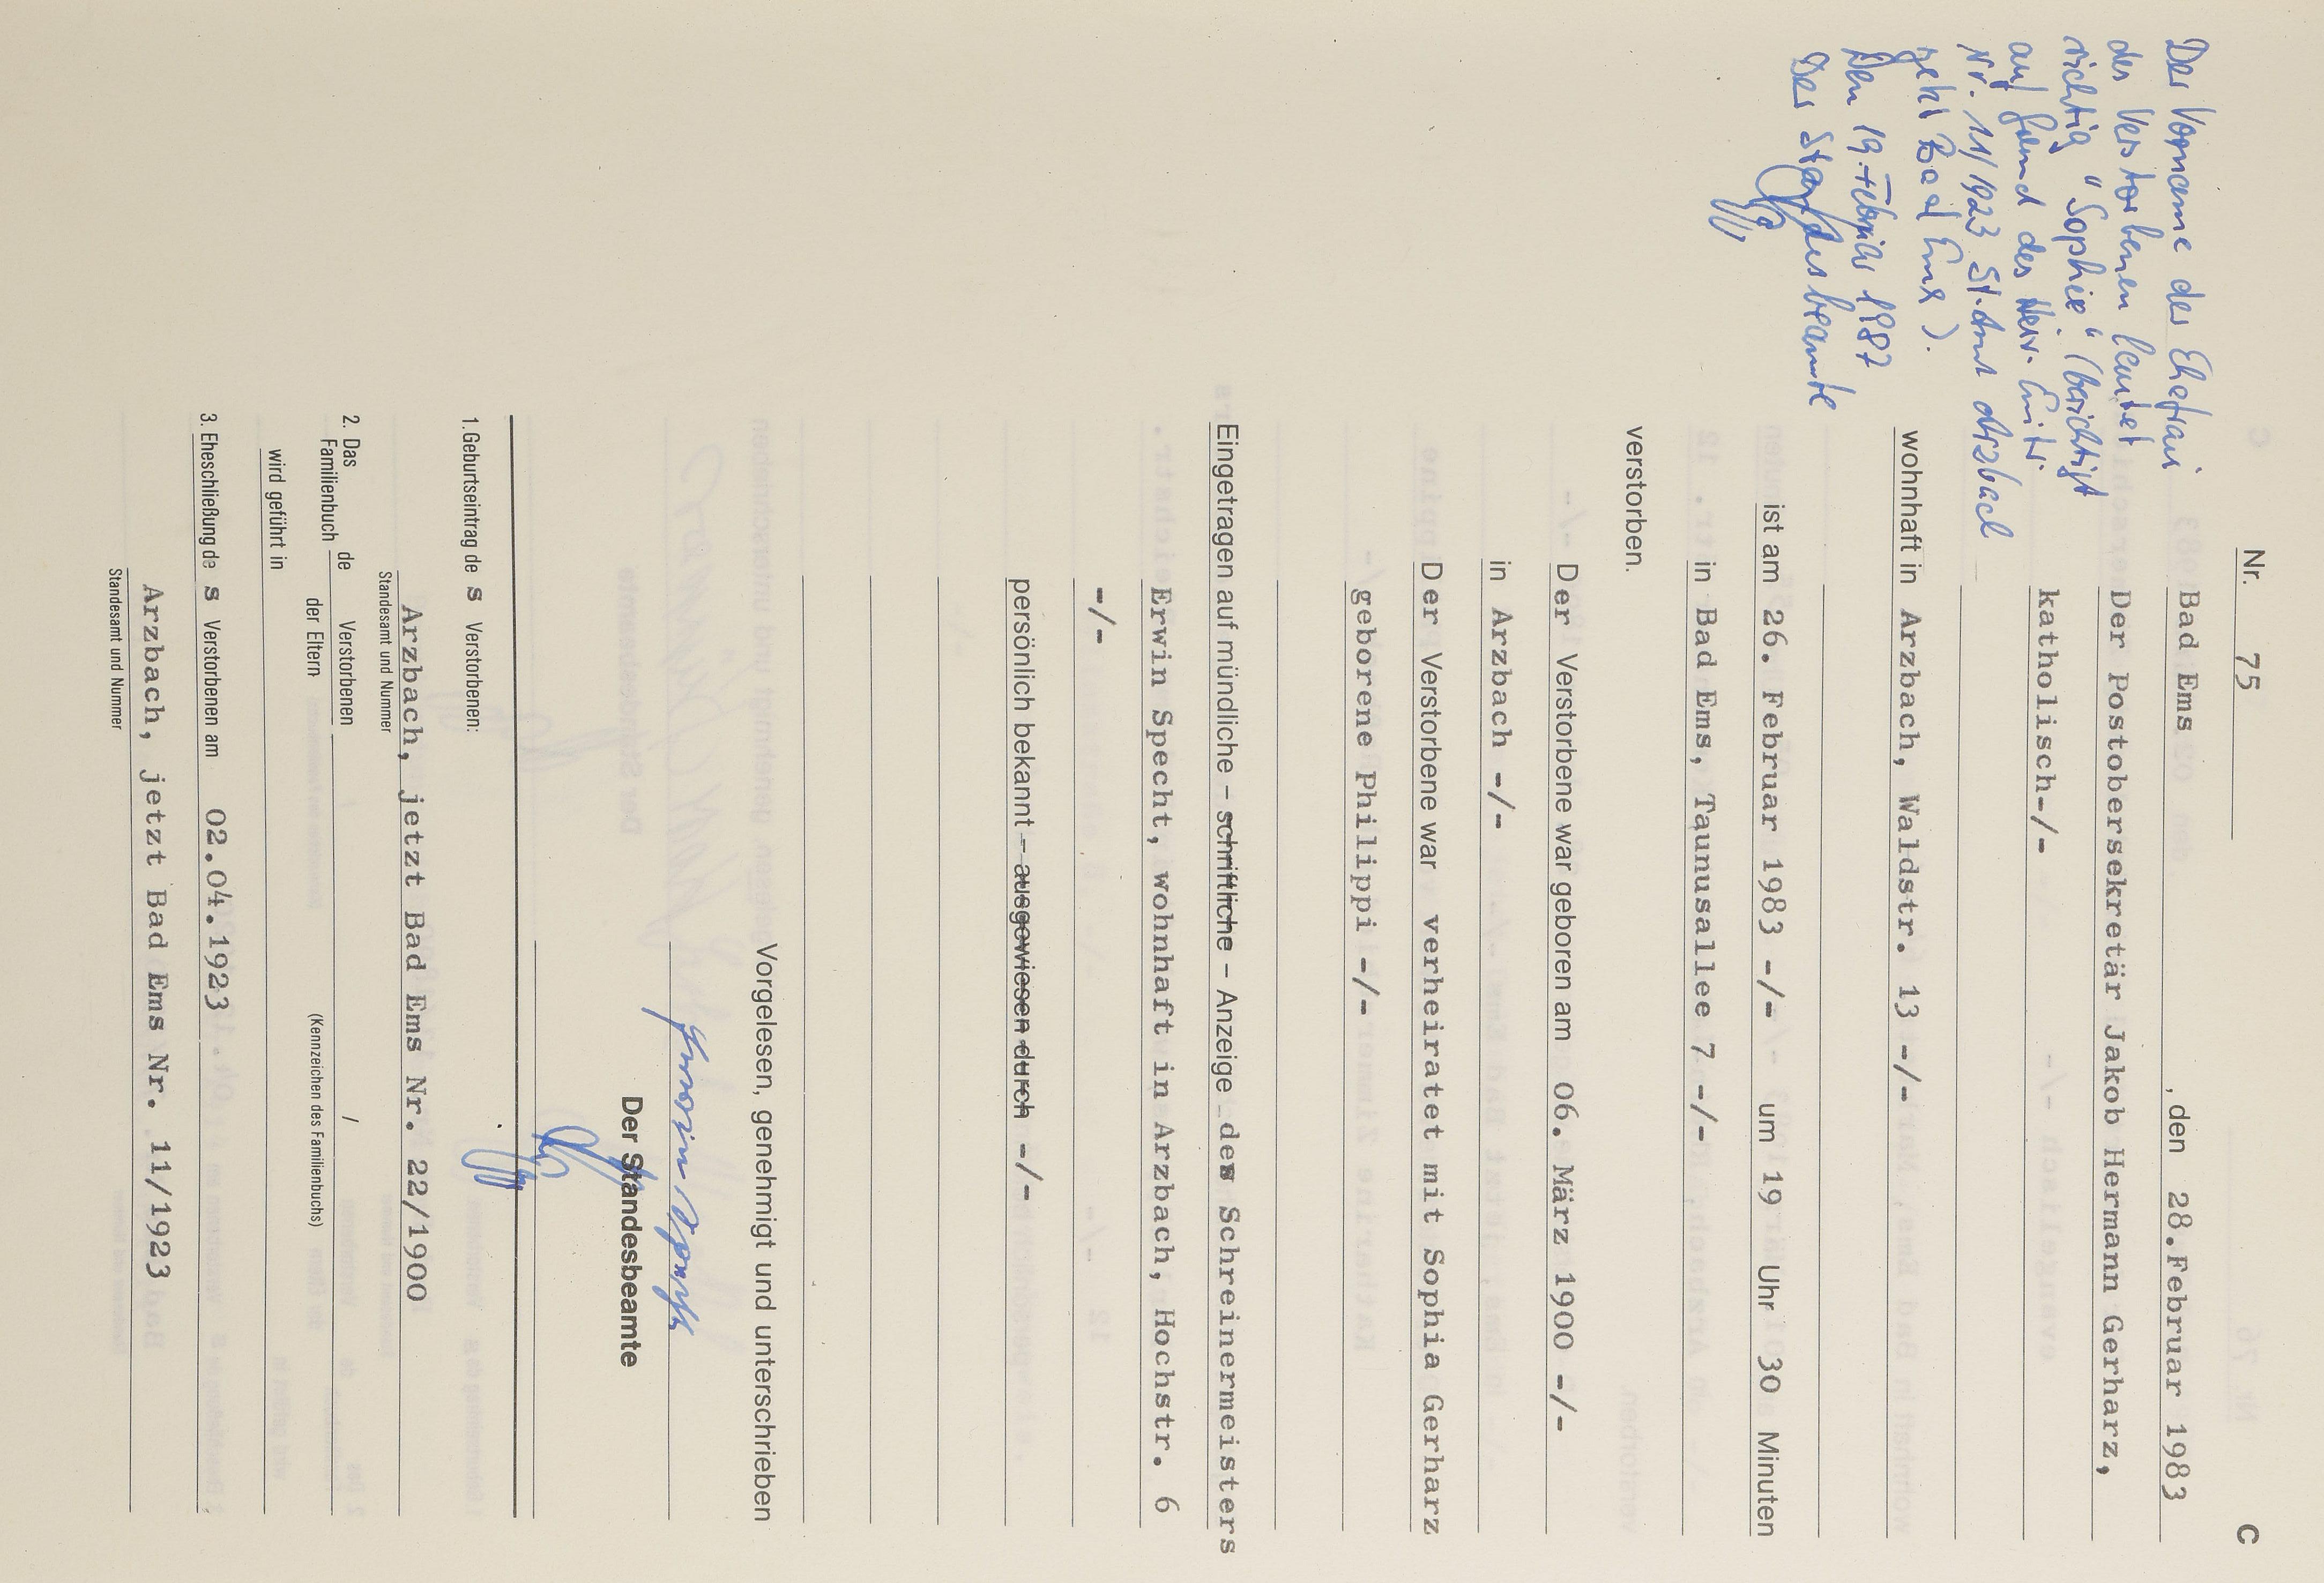 Nr. 75
C
Bad Ems, den 28.Februar 1983
Der Postobersekretär Jakob Hermann Gerharz,
katholisch-/-
wohnhaft in Arzbach, Waldstr. 13 -/-
ist am 26. Februar 1983 -/- um 19 Uhr 30 Minuten
in Bad Ems, Taunusallee 7 -/-
verstorben.
Der Verstorbene war geboren am 06. März 1900 -/-
in Arzbach -/-
Der Verstorbene war verheiratet mit Sophia Gerharz
geborene Philippi -/-
Eingetragen auf mündliche – schriftliche – Anzeige des Schreinermeisters
Erwin Specht, wohnhaft in Arzbach, Hochstr. 6
-/-
persönlich bekannt – ausgewiesen durch -/-
Vorgelesen, genehmigt und unterschrieben
Erwin Specht
Der Standesbeamte
1.Geburtseintrag des Verstorbenen:
Arzbach, jetzt Bad Ems Nr. 22/1900
Standesamt und Nummer
2. Das Familienbuch de Verstorbenen / /
der Eltern (Kennzeichen des Familienbuchs)
wird geführt in
3. Eheschließung des Verstorbenen am 02.04.1923
Arzbach, jetzt Bad Ems Nr. 11/1923
Standesamt und Nummer
Der Vorname der Ehefrau
des Verstorbenen lautet
richtig "Sophie" (berichtigt
auf Grund des Heir. Entr.
Nr. 11/1923 St.Amt Arzbach
jetzt Bad Ems).
Den 19. Februar 1987
Der Standesbeamte